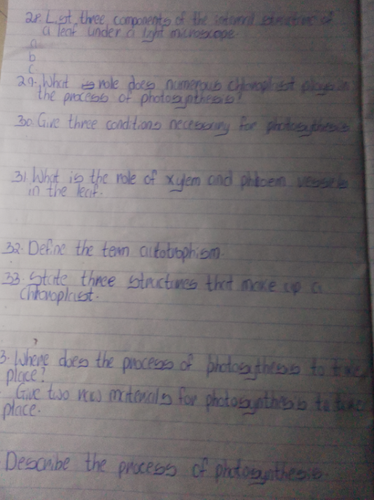 28. List three components of the internal structure of
a leaf under a light microscope.
a
b
c
29. What role does numerous chloroplast plays in
the process of photosynthesis?
30. Give three conditions necessary for photosythesis
31. What is the role of xylem and phloem vessels
in the leaf.
32. Define the term autotrophism.
33. State three structures that make up a
chloroplast.
?
3. Where does the process of photosythesis to take
place?
Give two raw materials for photosynthesis to take
place.
Describe the process of photosynthesis.